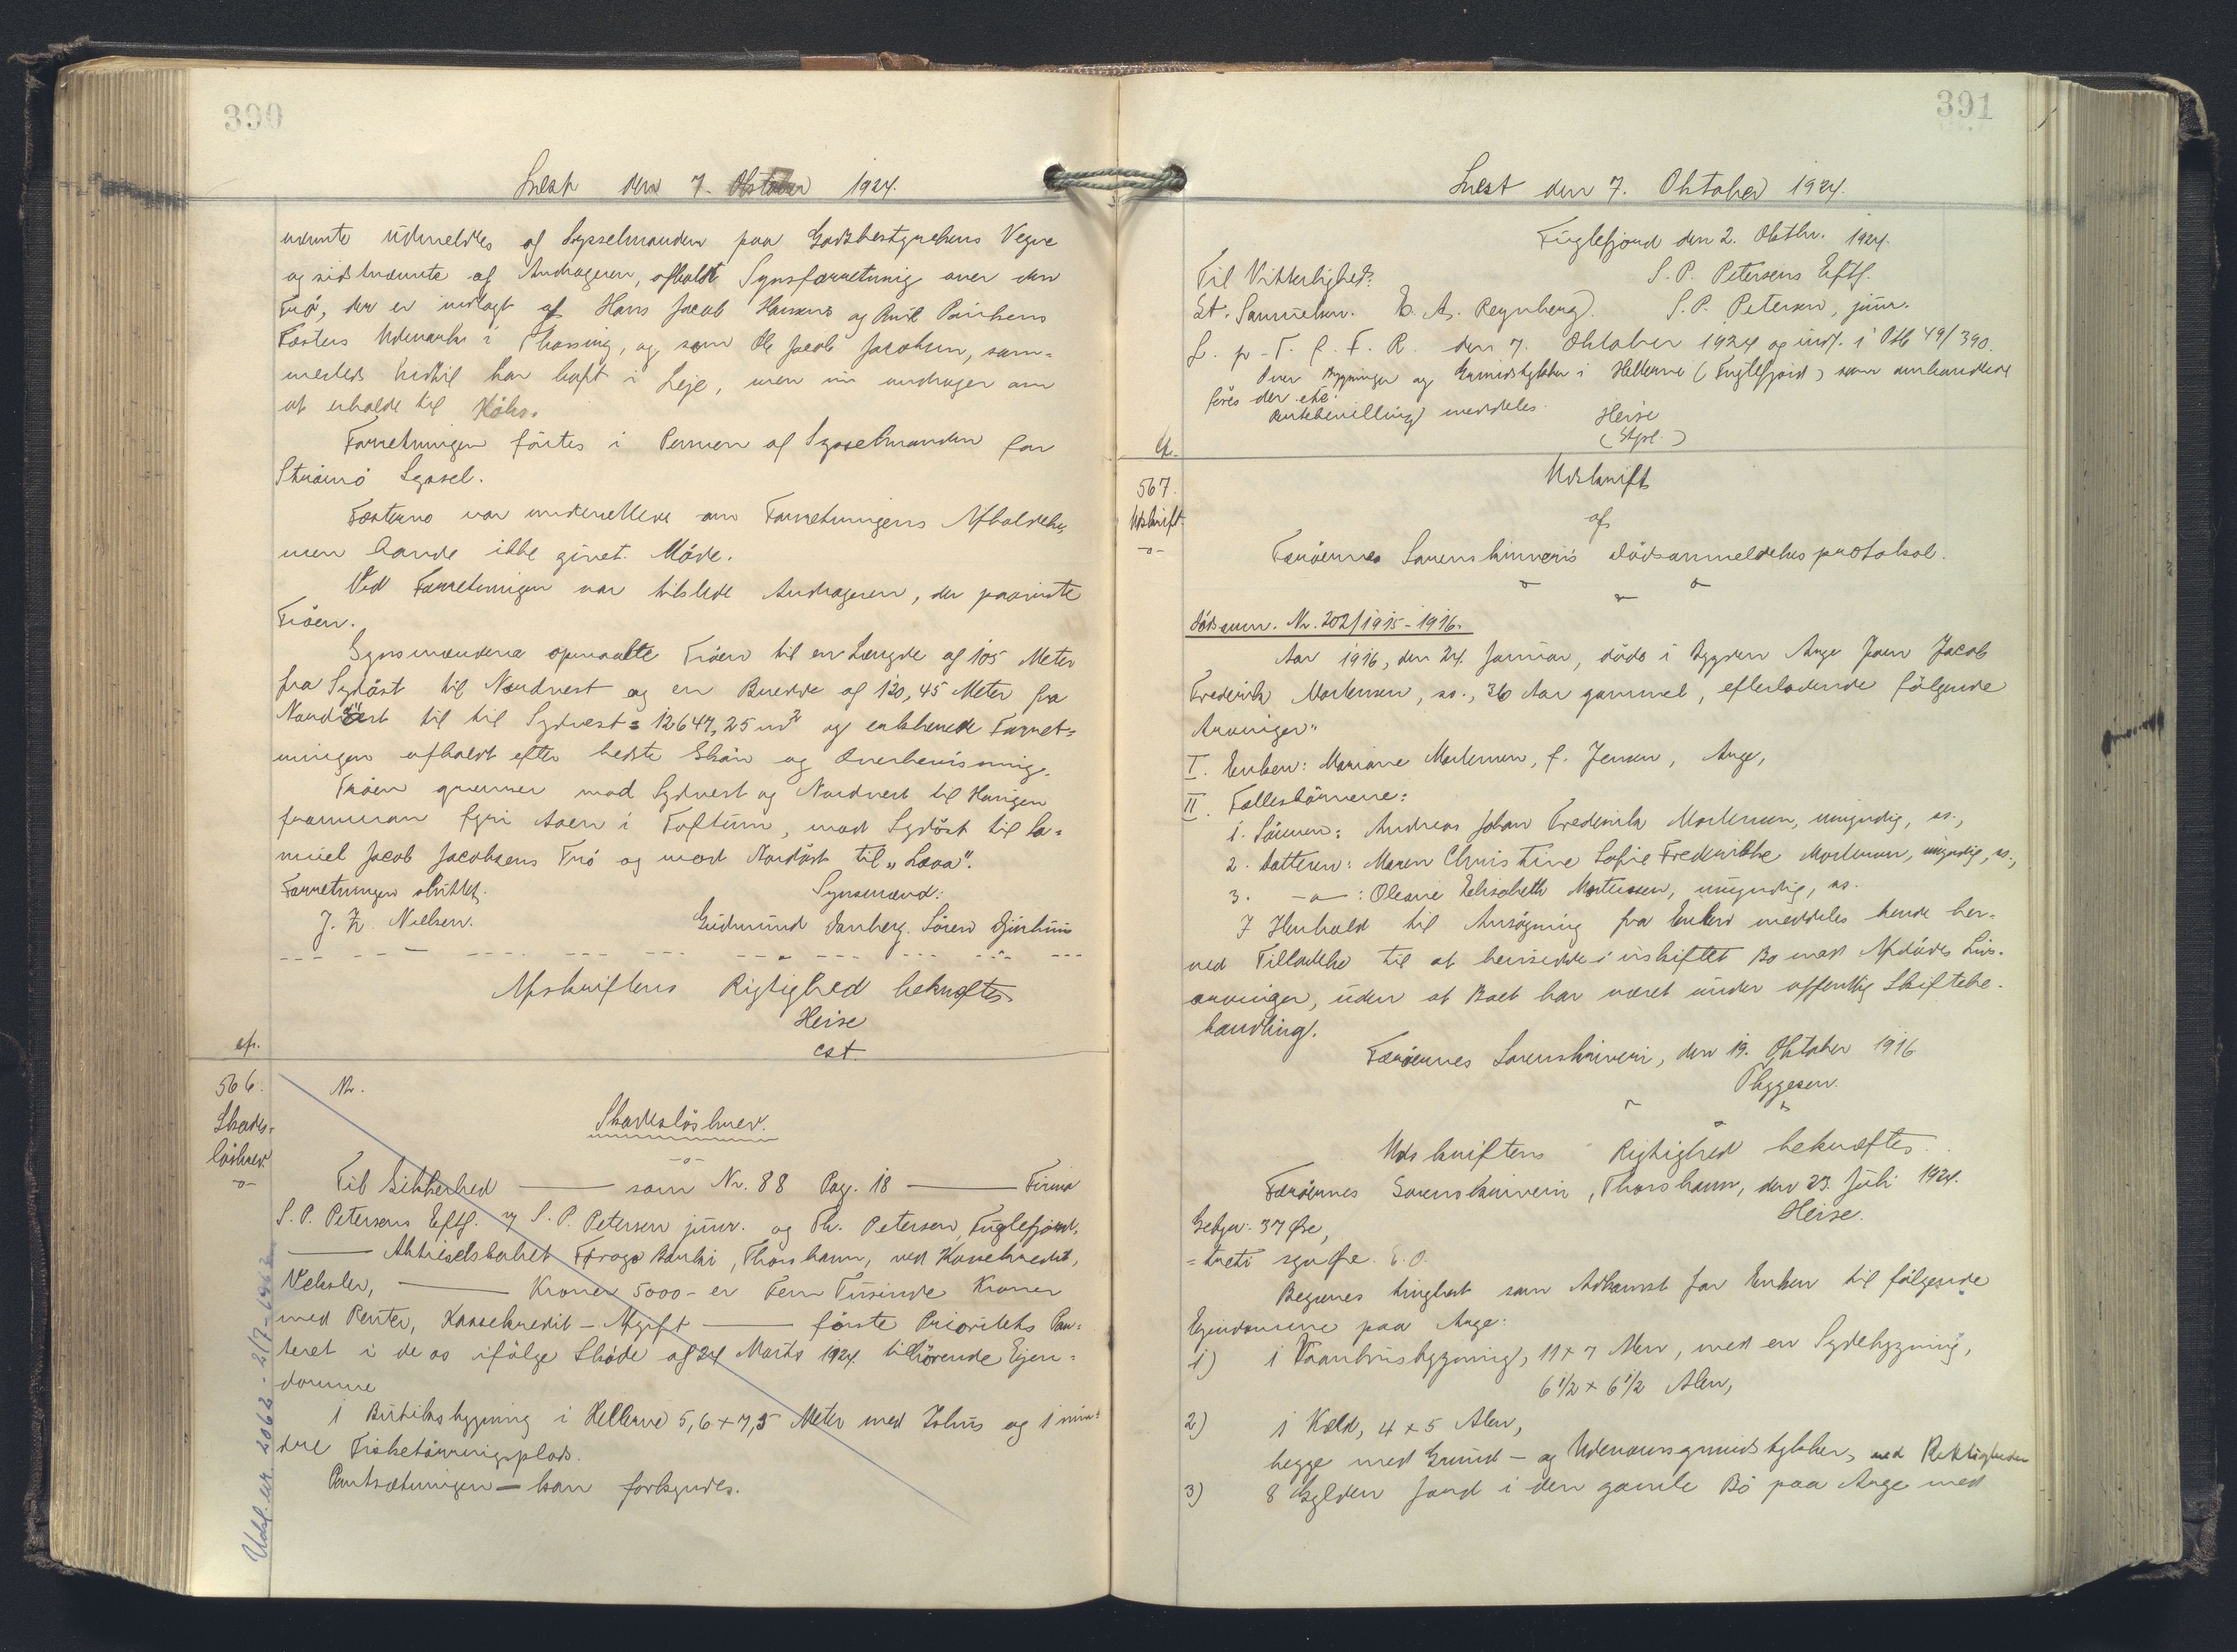 390
Læst den 7. Oktober 1924.
nævnte udmeldes af Sysselmanden paa Godsbestyrelsens Vegne
og sidstnævnte af Andrageren, afholdt Synsforretning over den
Trö, der er indlagt af Hans Jacob Hansens og Poul
Fæsters Udmark i Thorsvig, og som Ole Jacob Jacobsen, sam-
mesteds hidtil har haft i Leje, men nu andrager om
at erholde til Købs.
Forretningen førtes i Pennen af Sysselmanden for
Strömö Syssel.
Fæsterne var underrettede om Forretningens Afholdelse,
men havde ikke givet Møde.
Ved Forretningen var tilstede Andrageren, der paaviste
Tröen.
Synsmændene opmaalte Tröen til en Længde af 105 Meter
fra Sydöst til Nordvest og en Bredde af 120,45 Meter fra
Nordöst til til Sydvest = 12647,25 m² og erklærede Forret-
ningen afholdt efter bedste Skön og Overbevisning.
Tröen grænser mod Sydvest og Nordvest til Havigen
framman fyri Aaen i Toftum, mod Sydöst til Sa-
muel Jacob Jacobsens Trö og mod Nordöst til "Lava".
Forretningen sluttet. Synsmænd:
J. F. Nielsen. Gudmund Danberg. Sören Djurhuus
Afskriftens Rigtighed bekræftes
Heise
cst.
566. Nr.
Skades-
løsbrev.
Skadesløsbrev.
Til Sikkerhed — som Nr. 88 Pag. 18 — Firma
S. P. Petersens Eftf. v/ S. P. Petersen junr. og Th. Petersen, Fuglefjord,
— Aktieselskabet Föroya Banki, Thorshavn, ved Kassekredit,
Veksler, — Kroner 5000 - er Fem Tusinde Kroner
med Renter, Kassekredit - Afgift — förste Prioritets Pan-
teret i de os ifølge Sköde af 24 Marts 1924 tilhörende Ejen-
domme
1 Butiksbygning i Hellerne 5,6 + 7,5 Meter med Ishus og 1 min-
dre Fisketörringsplads.
Pantsætningen — kan forkyndes.
Udsl. nr. 2062 - 2/7 - 1962
391
Læst den 7. Oktober 1924.
Fuglefjord den 2. Oktbr. 1924.
Til Vitterlighed: S. P. Petersens Eftf.
St. Samuelsen. E. A. Reynberg. S. P. Petersen, junr.
L. p. T. f. F. R. den 7. Oktober 1924 og indf. i Ptb 49/390.
Over Bygninger og Grundstykker i Hellerne (Fuglefjord) som omhandlede
föres der etc.
Rentebevilling meddeles. Heise
(Stpl.)
567.
Udskrift
Udskrift
af
Færöernes Sorenskriveris Dödsanmeldelsesprotokol.
Dödsanm. Nr. 202/1915-1916.
Aar 1916, den 24. Januar, döde i Bygden Ange Joen Jacob
Frederik Mortensen, ss., 36 Aar gammel, efterladende følgende
Arvinger:
I. Enken: Mariane Mortensen, f. Jensen, Ange,
II. Fællesbörnene:
1. Sönnen: Andreas Johan Frederik Mortensen, umyndig, ss.,
2. Datteren: Maren Christine Sofie Frederikke Mortensen, umyndig, ss.,
3. -o- : Oleane Elisabeth Mortensen, umyndig, ss.
I Henhold til Ansögning fra Enken meddeles hende her-
ved Tilladelse til at hensidde i uskiftet Bo med Afdödes Livs-
arvinger, uden at Boet har været under offentlig Skiftebe-
handling.
Færöernes Sorenskriveri, den 19. Oktober 1916
Thygesen.
Udskriftens Rigtighed bekræftes.
Færöernes Sorenskriveri, Thorshavn, den 23. Juli 1924.
Gebyr: 37 Øre, Heise.
= treti syv Øre. E. O.
Begæres tinglæst som Adkomst for Enken til følgende
Ejendomme paa Ange:
1) 1 Vaanhusbygning, 11 x 7 Alen, med en Sydebygning,
6 1/2 x 6 1/2 Alen,
2) 1 Kæld, 4 x 5 Alen,
begge med Grund - og Udenomsgrundstykker, med Rettigheder
3) 8 Gylden Jord i den gamle Bö paa Ange med